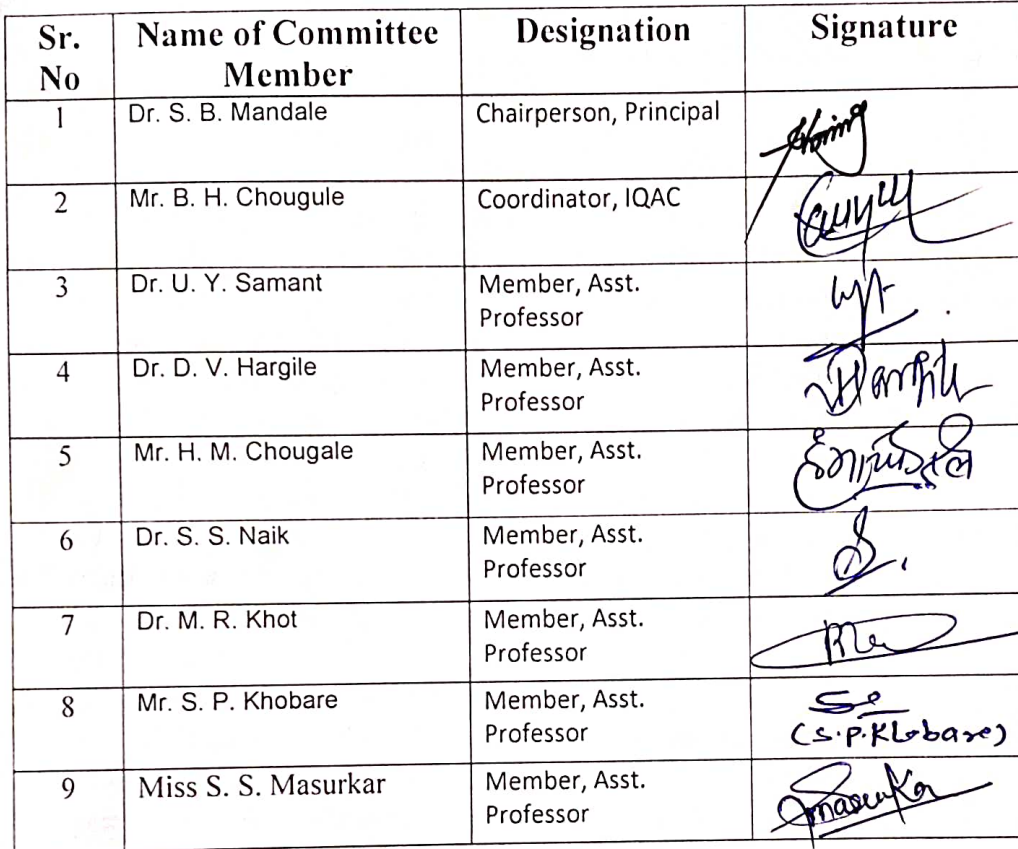 Sr. No
Name of Committee Member
Designation
Signature
1
Dr. S. B. Mandale
Chairperson, Principal
2
Mr. B. H. Chougule
Coordinator, IQAC
3
Dr. U. Y. Samant
Member, Asst.
Professor
4
Dr. D. V. Hargile
Member, Asst.
Professor
5
Mr. H. M. Chougale
Member, Asst.
Professor
6
Dr. S. S. Naik
Member, Asst.
Professor
7
Dr. M. R. Khot
Member, Asst.
Professor
8
Mr. S. P. Khobare
Member, Asst.
Professor
(S.P.Khobare)
9
Miss S. S. Masurkar
Member, Asst.
Professor